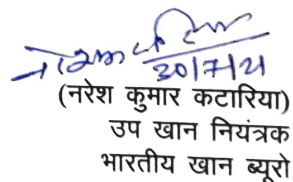 20/7/21
(नरेश कुमार कटारिया)
उप खान नियंत्रक
भारतीय खान ब्यूरो